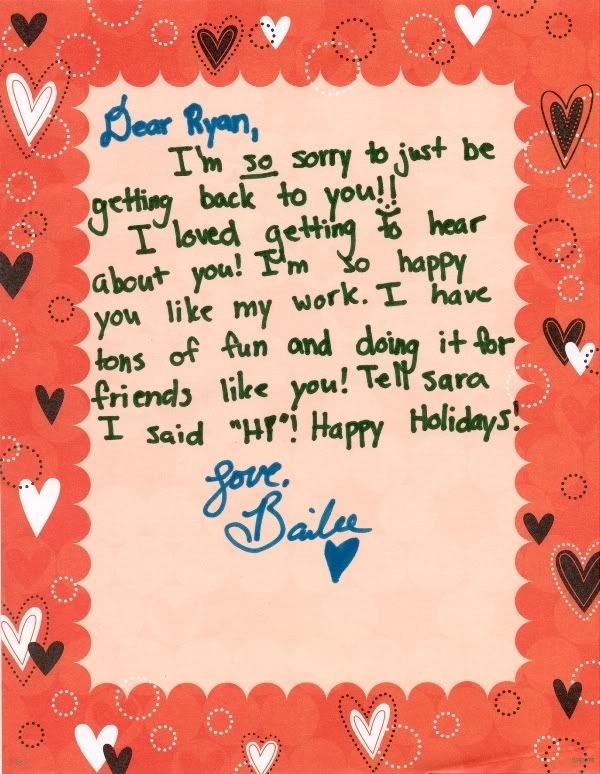 Dear Ryan,
I'm so sorry to just be
getting back to you!!
I loved getting to hear
about you! I'm so happy
you like my work. I have
tons of fun and doing it for
friends like you! Tell sara
I said "HI"! Happy Holidays!
Love,
Bailee